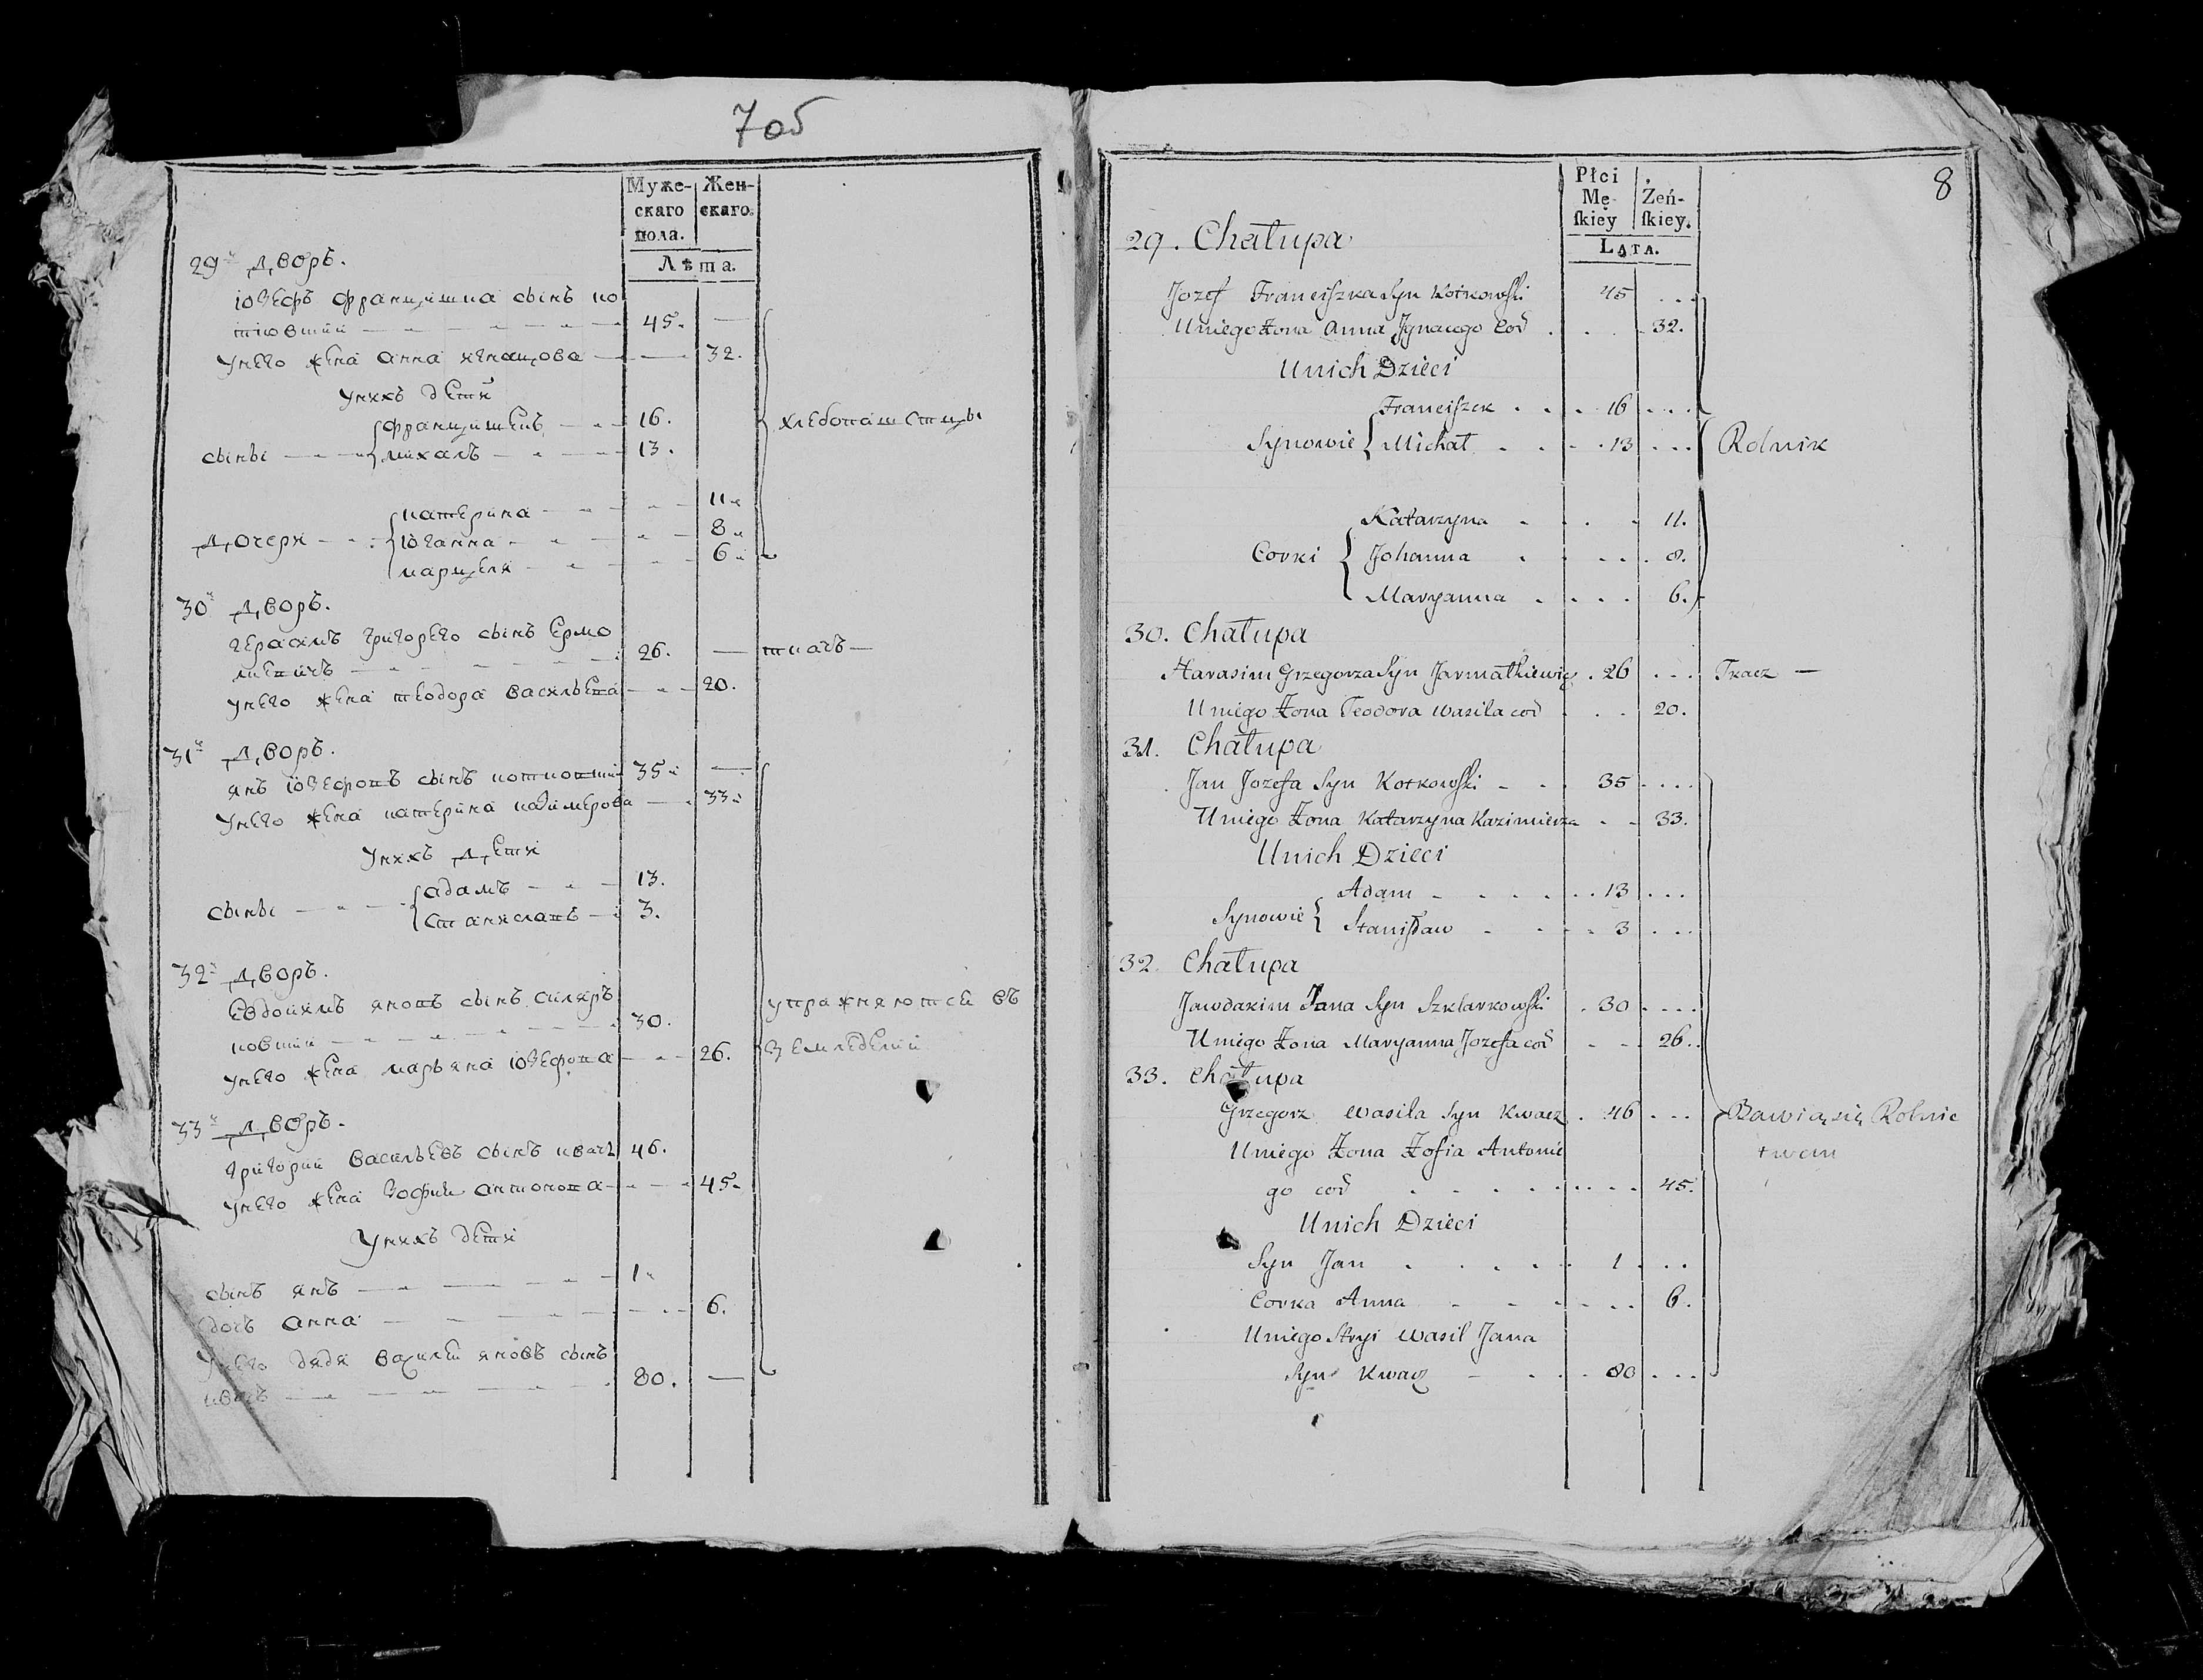 7 об
Муже- Жен-
скаго скаго.
пола.
Лѣта.
29й дворъ.
Юзефъ францишка сынъ ко
тковский 45.
унего жена анна игнацова 32.
унихъ дети
францишекъ 16.
сыны михалъ 13.
хлебопашстцы
катерина 11
дочери иоганна 8
марцеля 6
30й дворъ.
герасимъ григорего сынъ ермо
26. ткачъ
унего жена теодора васильева 20.
31й дворъ.
янъ юзефовъ сынъ котковский 35
унего жена катерина казимерова 33
унихъ дети
адамъ 13.
сыны станиславъ 3.
32й дворъ.
евдокимъ яновъ сынъ скляръ
ковский 30.
упражняются въ
унего жена марьяна юзефова 26.
земледелии
33й дворъ.
григорий васильевъ сынъ квачъ 46.
унего жена зофия антонова 45.
унихъ дети
сынъ янъ 1
дочь анна 6.
унего дядя василий яновъ сынъ
квачъ 80.
8
Płci
Mę- Żeń-
skiey skiey.
LATA.
29. Chałupa
Jozef Franciszka Syn Kotkowski 45
Uniego Żona Anna Jgnacego Cod 32.
Unich Dzieci
Franciszek 16
Synowie Michał 13 Rolnik
Katarzyna 11.
Corki Johanna 8.
Maryanna 6.
30. Chałupa
Harasim Grzegorza Syn Jarmałkiewicz 26 Tkacz
Uniego Żona Teodora Wasila cod 20.
31. Chałupa
Jan Jozefa Syn Kotkowski 35
Uniego Żona Katarzyna Kazimierza 33.
Unich Dzieci
Adam 13
Synowie Stanisław 3
32. Chałupa
Jawdakim Jana Syn Szklarkowski 30
Uniego Żona Maryanna Jozefa cod 26.
33. Chałupa
Grzegorz Wasila Syn Kwacz 46 Bawią się Rolnic
Uniego Żona Zofia Antonie twem
go cod 45.
Unich Dzieci
Syn Jan 1
Corka Anna 6.
Uniego Stryi Wasil Jana
Syn Kwacz 80